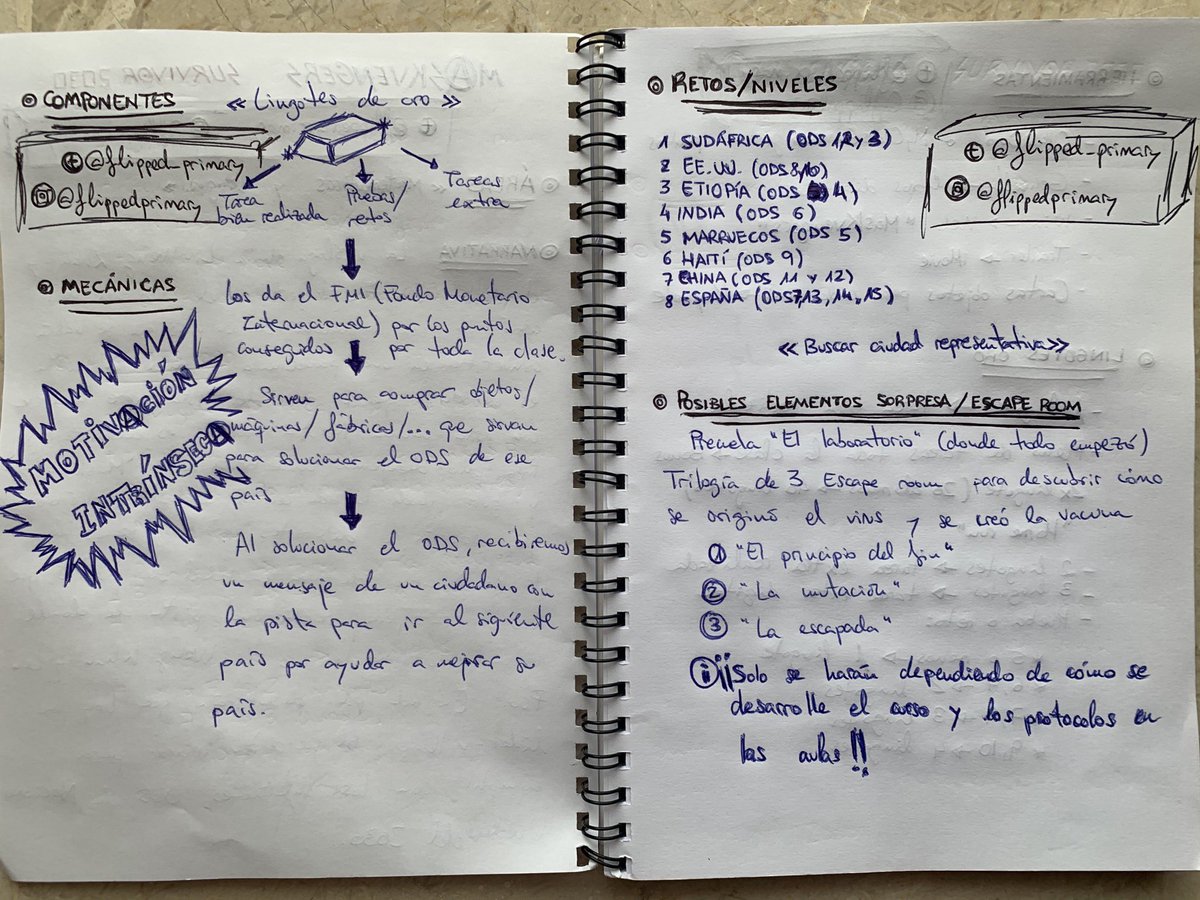 COMPONENTES
<< Lingotes de oro >>
@flipped_primary
@flippedprimary
Tarea
bien realizada
Pruebas/
retos
Tareas
extra
MECÁNICAS
Los da el FMI (Fondo Monetario
Internacional) por los puntos
conseguidos por toda la clase.
MOTIVACIÓN
INTRÍNSECA
Sirven para comprar objetos/
máquinas/fábricas/... que sirvan
para solucionar el ODS de ese
país
Al solucionar el ODS, recibiremos
un mensaje de un ciudadano con
la pista para ir al siguiente
país por ayudar a mejorar su
país.
RETOS/NIVELES
1 SUDÁFRICA (ODS 1, 2 y 3)
2 EE.UU. (ODS 8,10)
3 ETIOPÍA (ODS 4)
4 INDIA (ODS 6)
5 MARRUECOS (ODS 5)
6 HAITÍ (ODS 9)
7 CHINA (ODS 11 y 12)
8 ESPAÑA (ODS 7,13, 14, 15)
@flipped_primary
@flippedprimary
<< Buscar ciudad representativa>>
POSIBLES ELEMENTOS SORPRESA/ESCAPE ROOM
Precuela "El laboratorio" (donde todo empezó)
Trilogía de 3 Escape room para descubrir cómo
se originó el virus y se creó la vacuna
1 "El principio del fin"
2 "La mutación"
3 "La escapada"
¡¡Solo se harán dependiendo de cómo se
desarrolle el curso y los protocolos en
las aulas!!
SURVIVOR 2030